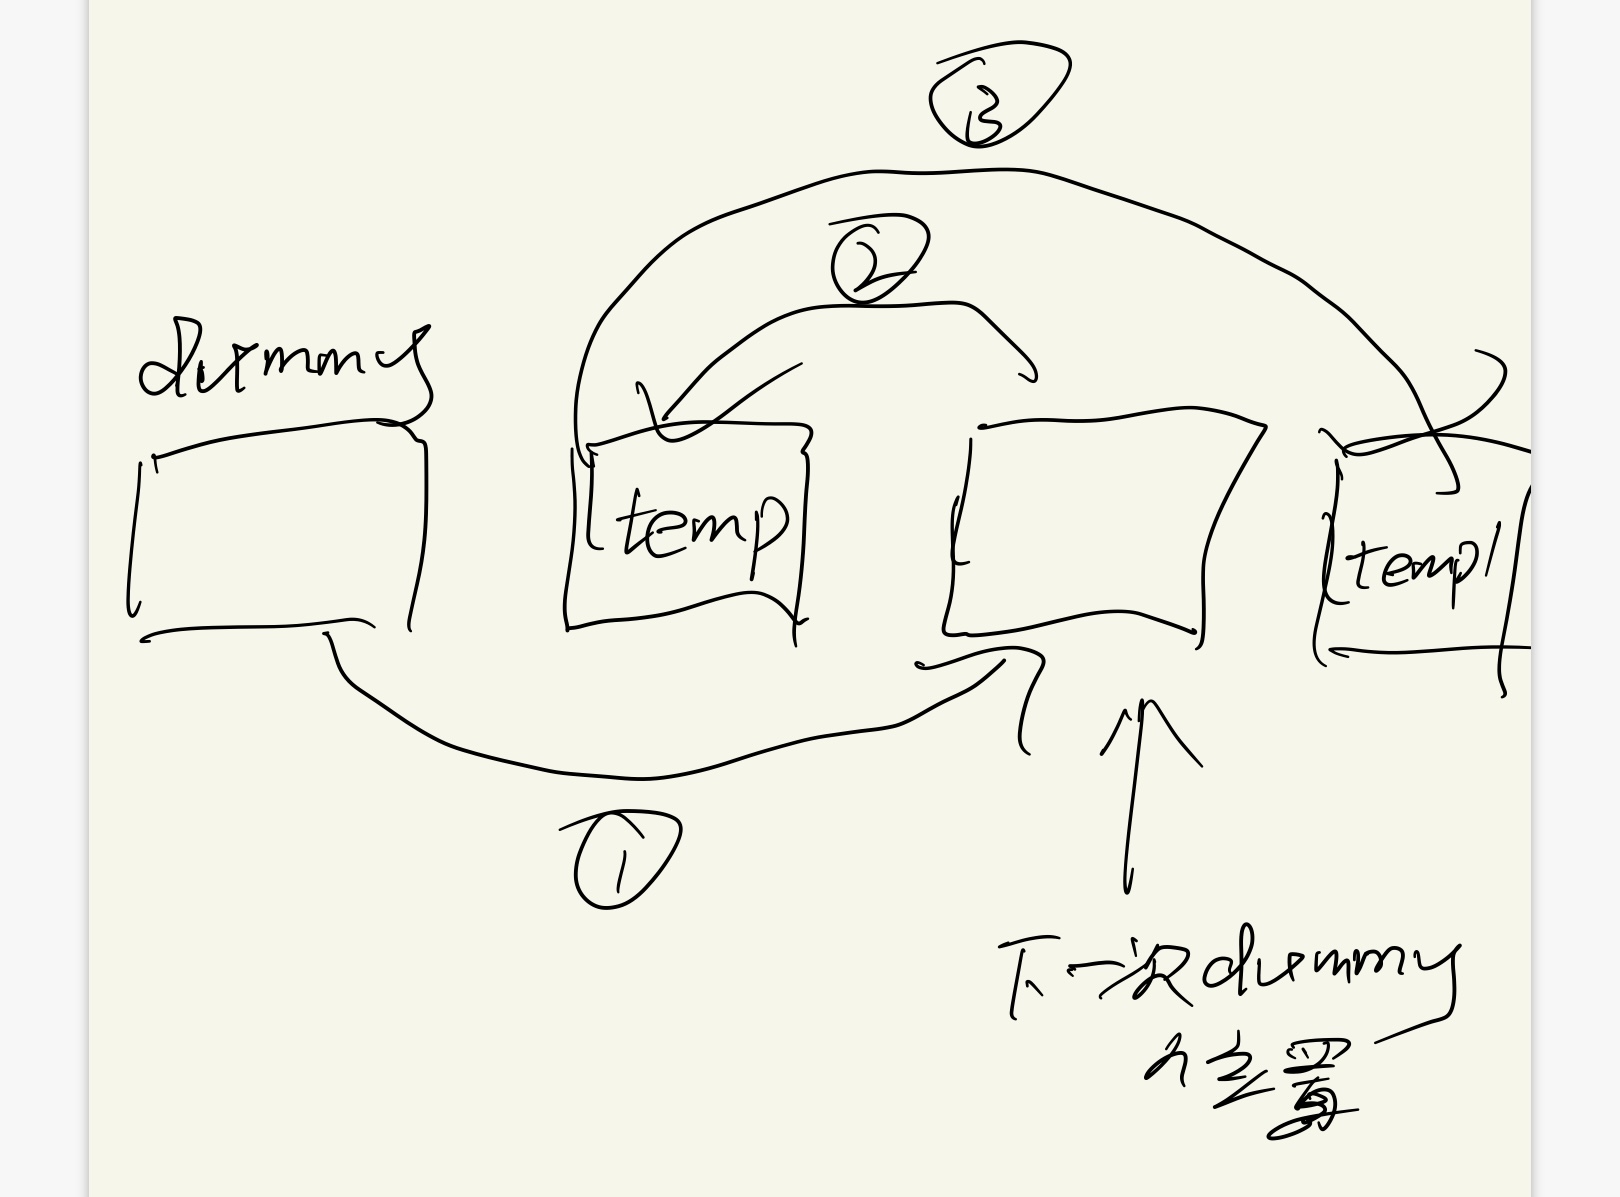 ③
②
dummy
temp
temp1
①
下一次dummy
位置